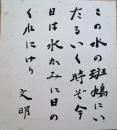 この水の斑鳩にい
たるいく時ぞ今
日は水かみに日の
くれにけり 文明